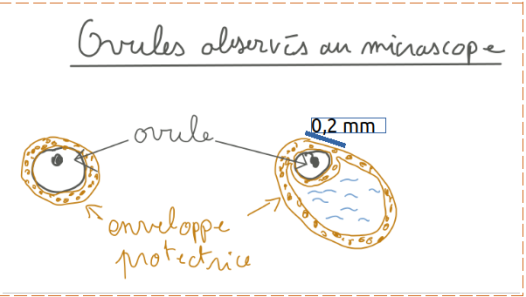 Ovules observés au microscope
0,2 mm
ovule
enveloppe
protectrice